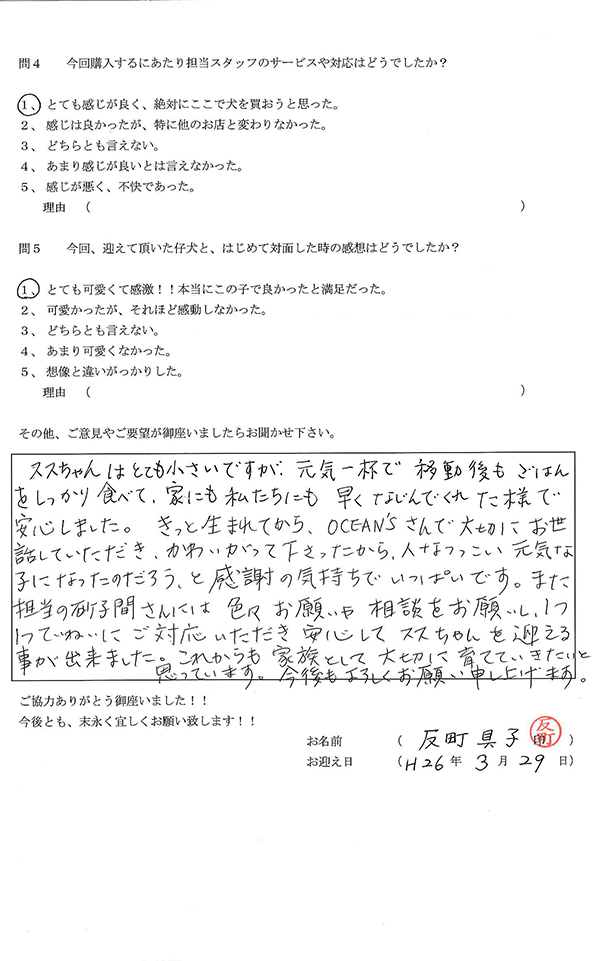 問４　今回購入するにあたり担当スタッフのサービスや対応はどうでしたか？
１、とても感じが良く、絶対にここで犬を買おうと思った。
２、感じは良かったが、特に他のお店と変わりなかった。
３、どちらとも言えない。
４、あまり感じが良いとは言えなかった。
５、感じが悪く、不快であった。
理由　（　　　　　）
問５　今回、迎えて頂いた仔犬と、はじめて対面した時の感想はどうでしたか？
１、とても可愛くて感激！！本当にこの子で良かったと満足だった。
２、可愛かったが、それほど感動しなかった。
３、どちらとも言えない。
４、あまり可愛くなかった。
５、想像と違いがっかりした。
理由　（　　　　　）
その他、ご意見やご要望が御座いましたらお聞かせ下さい。
ススちゃんはとても小さいですが、元気一杯で 移動後も ごはん
をしっかり食べて、家にも私たちにも 早くなじんでくれた様で
安心しました。きっと生まれてから、OCEAN'Sさんで大切にお世
話していただき、かわいがって下さったから、人なつっこい元気な
子になったのだろう、と感謝の気持ちでいっぱいです。また
担当の砂子間さんには 色々お願いや 相談をお願いし、1つ
1つていねいにご対応いただき 安心して ススちゃんを迎える
事が出来ました。これからも 家族として 大切に育てていきたいと
思っています。今後もよろしくお願い申し上げます。
ご協力ありがとう御座いました！！
今後とも、末永く宜しくお願い致します！！
お名前　（　反町 具子　印　）
反町
お迎え日　（H26 年 3 月 29 日）